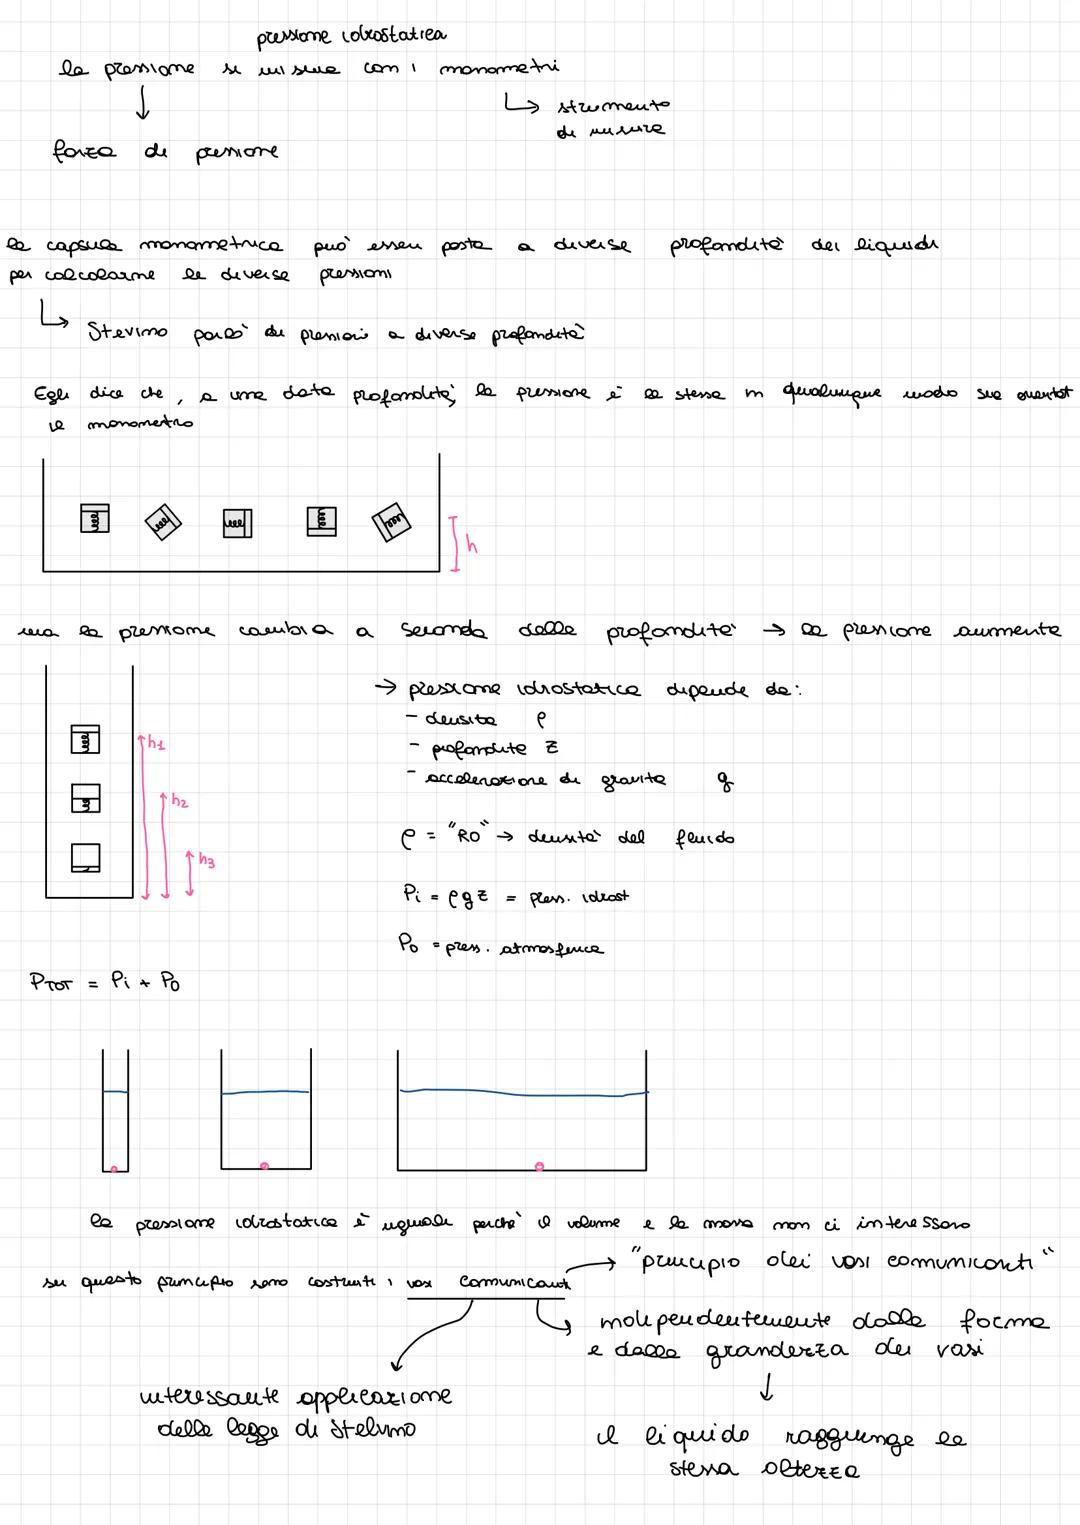 pressione idrostatica
la pressione si misura con i monometri
strumento
di misura
forza di pressione
la capsula monometrica può essere posta a diverse profondità dei liquidi
per calcolarne le diverse pressioni
Stevino parlò di pressioni a diverse profondità
Egli dice che, a una data profondità, la pressione è la stessa in qualunque modo sia orientat
il monometro
h
ma la pressione cambia a seconda della profondità → la pressione aumenta
→ pressione idrostatica dipende da:
- densita ρ
- profondita z
- accelerazione di gravita g
h1
h2
h3
ρ = "RO" → densità del fluido
Pi = ρgz = press. idrost
Po = press. atmosferica
PTOT = Pi + Po
la pressione idrostatica è uguale perchè il volume e la massa non ci interessano
→ "principio dei vasi comunicanti"
su questo principio sono costruiti i vasi comunicanti
indipendentemente dalla forma
e dalla grandezza dei vasi
interessante applicazione
della legge di Stelvino
il liquido raggiunge la
stessa altezza